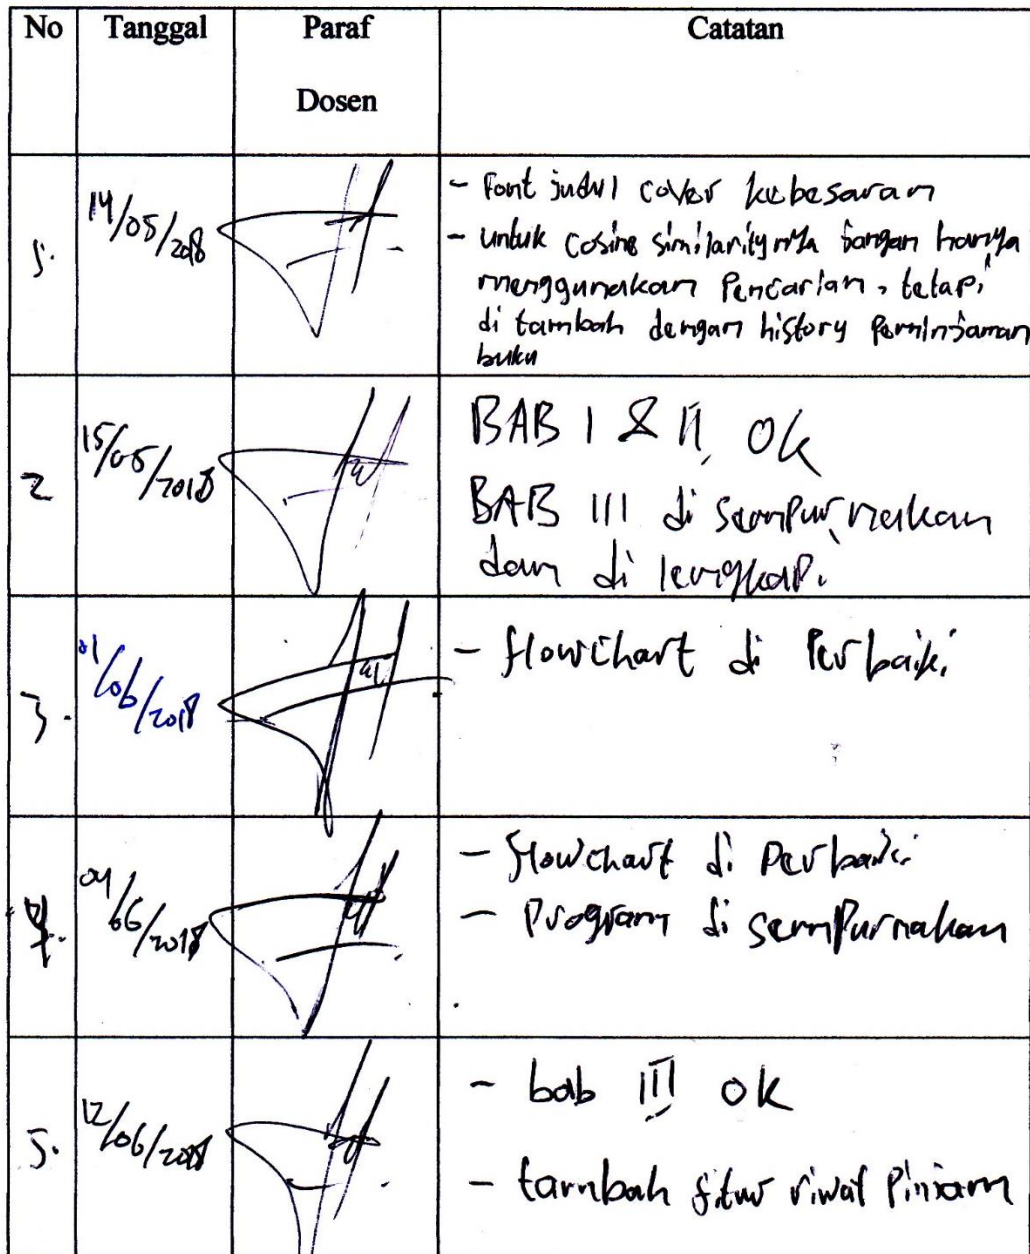 No Tanggal Paraf Dosen Catatan
1. 14/05/2018
- Font judul cover kebesaran
- untuk cosine similaritynya jangan hanya
menggunakan Pencarian, tetapi
di tambah dengan history Peminjaman
buku
2 15/05/2018
BAB I & II, Ok
BAB III di semPurnakan
dan di lengkaP.
3. 01/06/2018
- flowchart di Perbaiki
4. 04/06/2018
- flowchart di Perbaiki
- Program di semPurnakan
5. 12/06/2018
- bab III ok
- tambah fitur riwat Pinjam